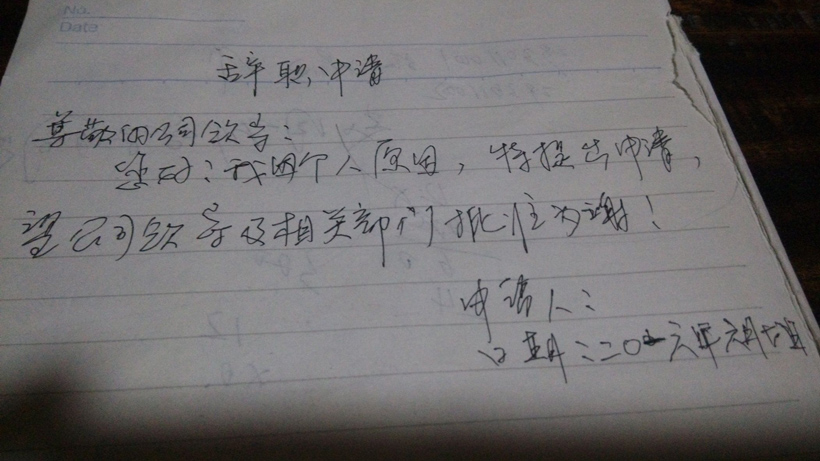 No.
Date
辞职申请
尊敬的公司领导：
您好：我因个人原因，特提出申请，
望公司领导及相关部门批准为谢！
申请人：
日期：二〇一六年六月